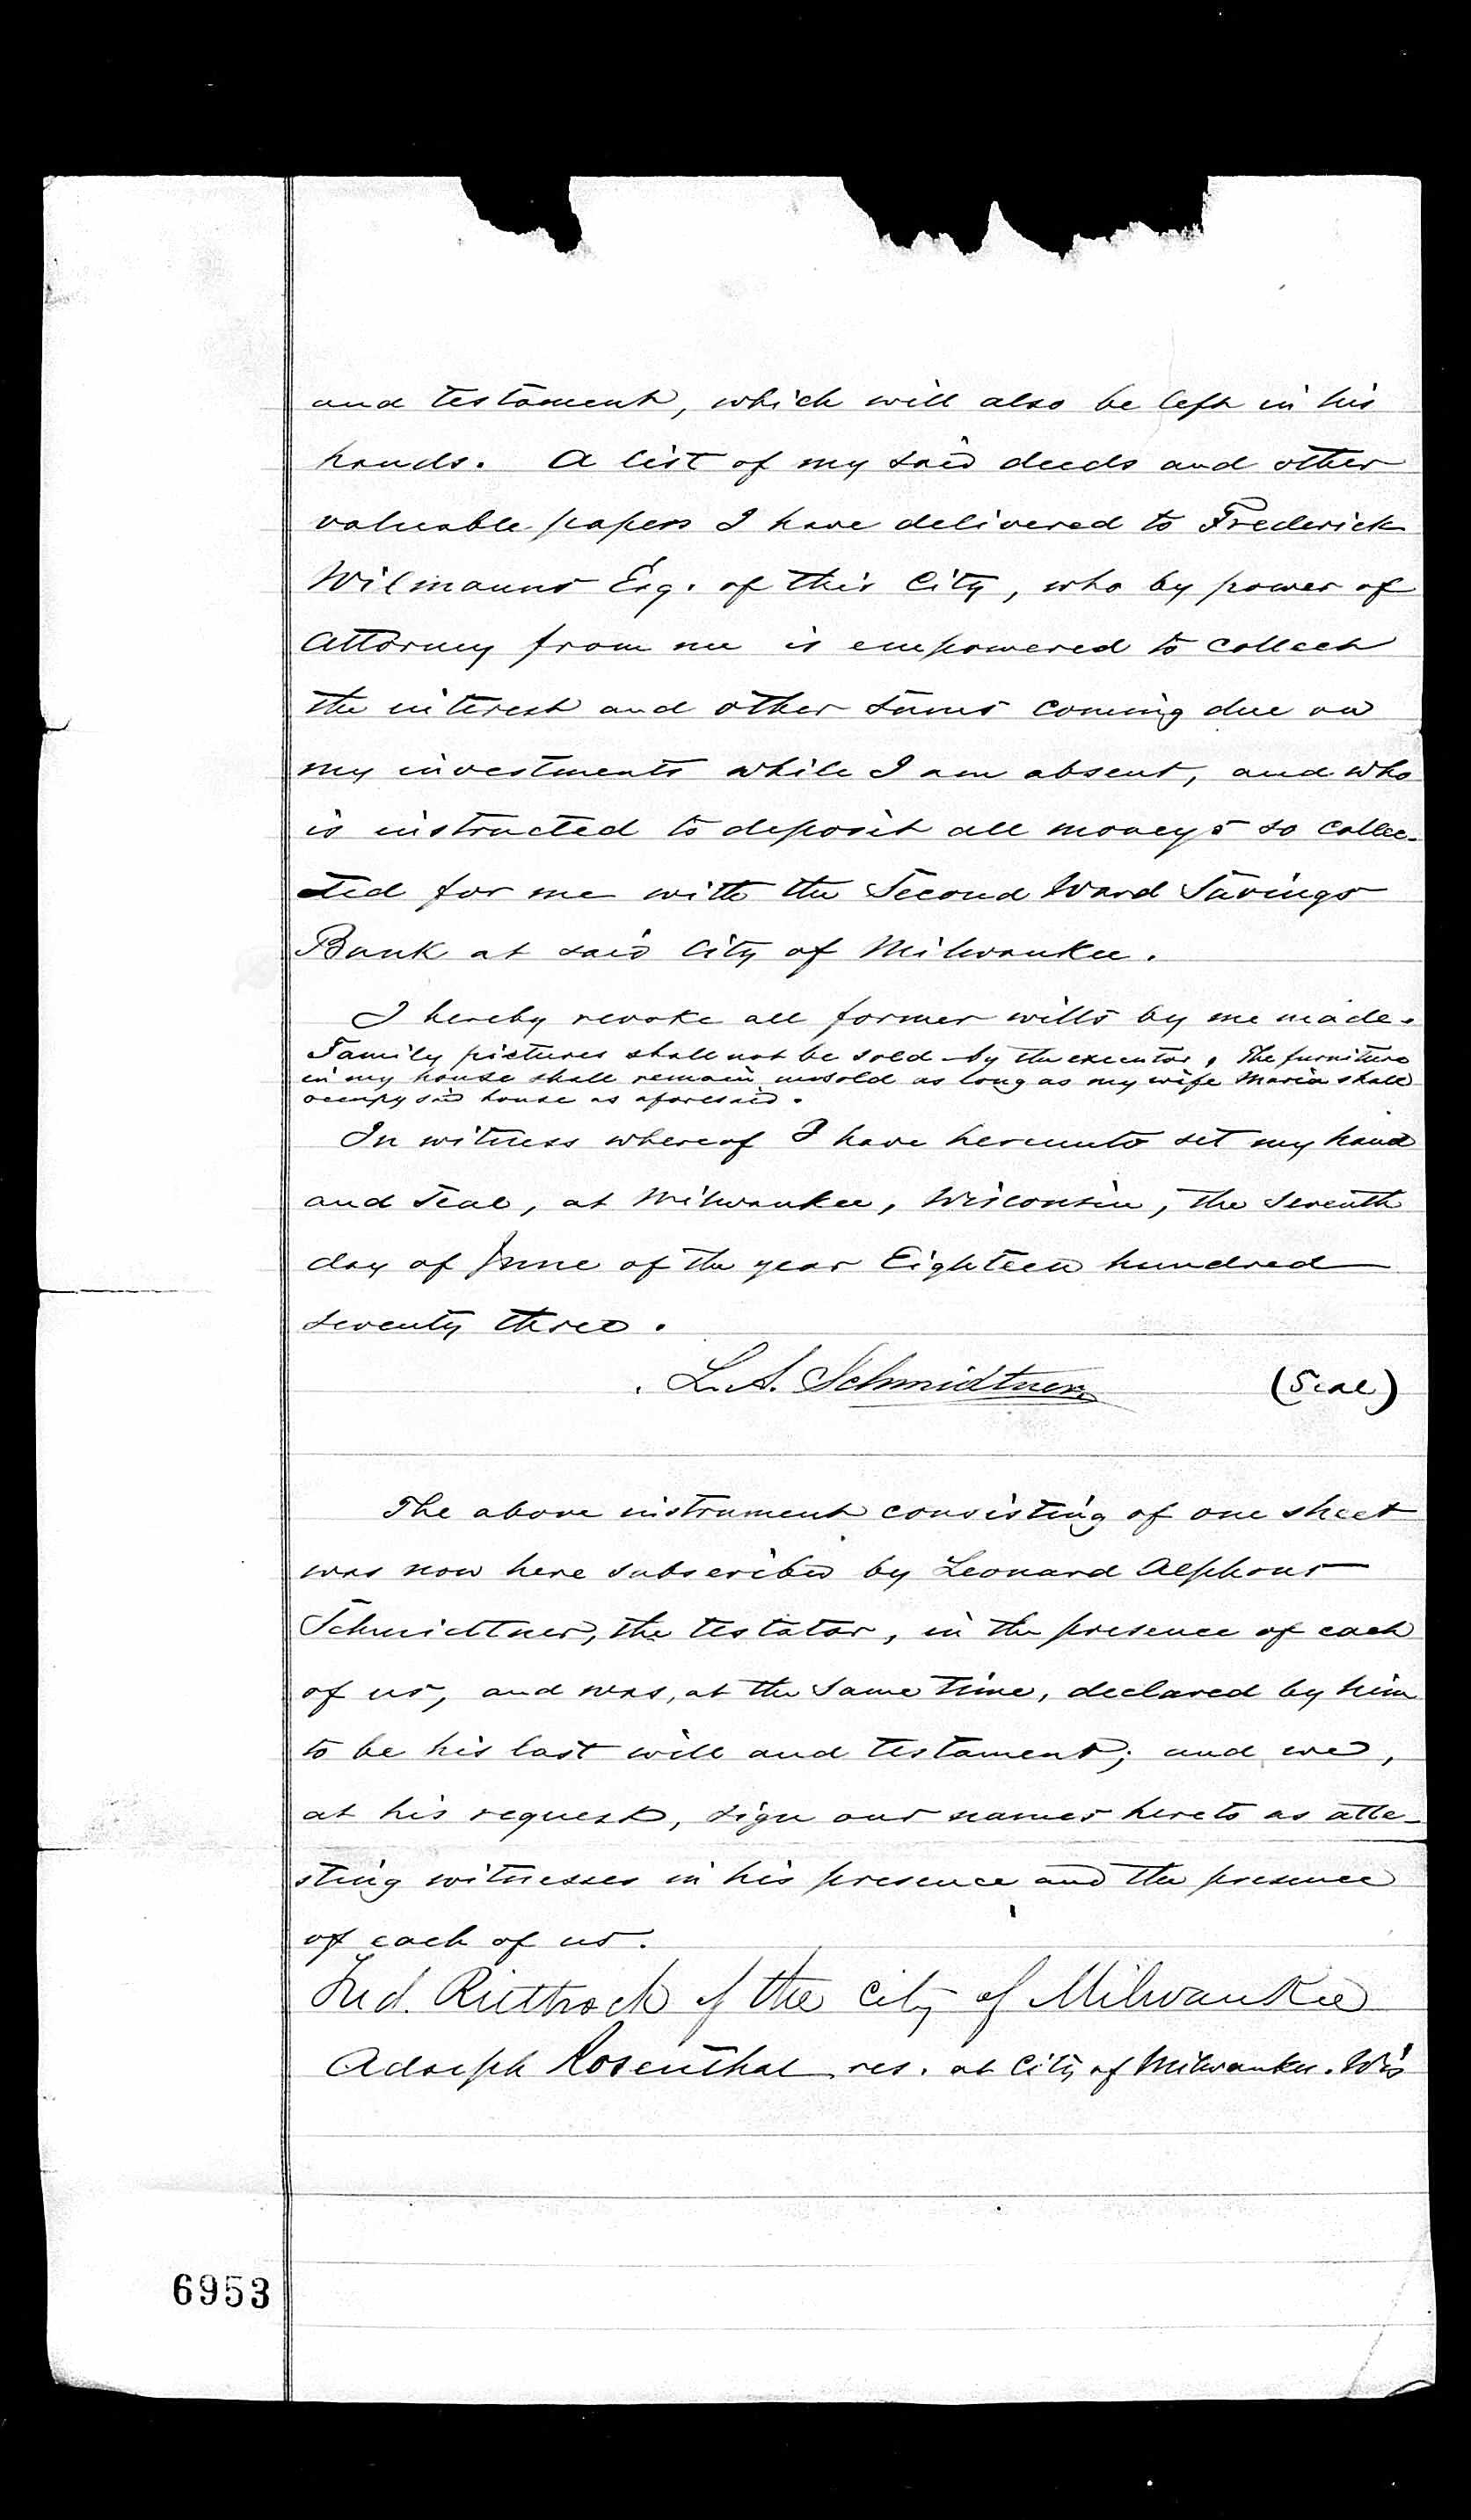 and testament, which will also be left in his
hands. A list of my said deeds and other
valuable papers I have delivered to Frederick
Wilmanns Esq. of this City, who by power of
Attorney from me is empowered to collect
the interest and other sums coming due on
my investments while I am absent, and who
is instructed to deposit all moneys so collec-
ted for me with the Second Ward Savings
Bank at said City of Milwaukee.
I hereby revoke all former wills by me made.
Family pictures shall not be sold by the executor. The furniture
in my house shall remain unsold as long as my wife Maria shall
occupy said house as aforesaid.
In witness whereof I have hereunto set my hand
and seal, at Milwaukee, Wisconsin, the seventh
day of June of the year Eighteen hundred
seventy three.
L. A. Schmidtner (Seal)
The above instrument consisting of one sheet
was now here subscribed by Leonard Alphons
Schmidtner, the testator, in the presence of each
of us, and was, at the same time, declared by him
to be his last will and testament; and we,
at his request, sign our names hereto as atte-
sting witnesses in his presence and the presence
of each of us.
Fred. Rietbrock of the City of Milwaukee
Adolph Rosenthal res. at City of Milwaukee. Wis
6953